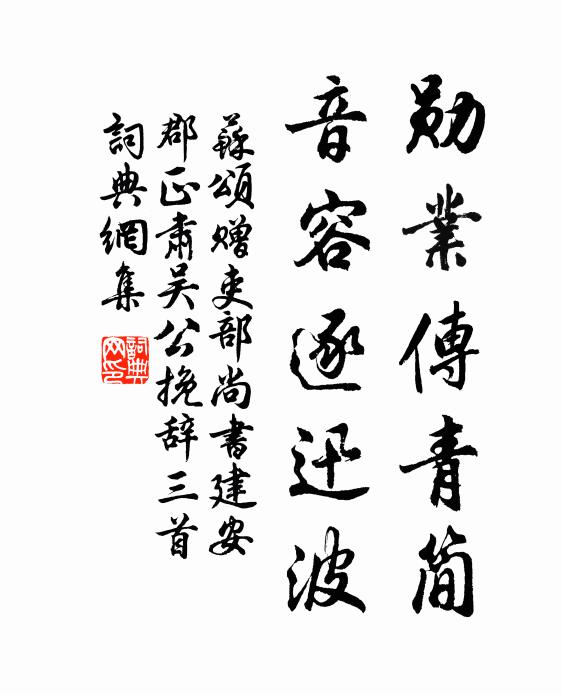 勋業傳青简
音容逐迅波
蘇頌赠吏部尚書建安
郡正肅吴公挽辞三首
詞典網集
詞典
网印